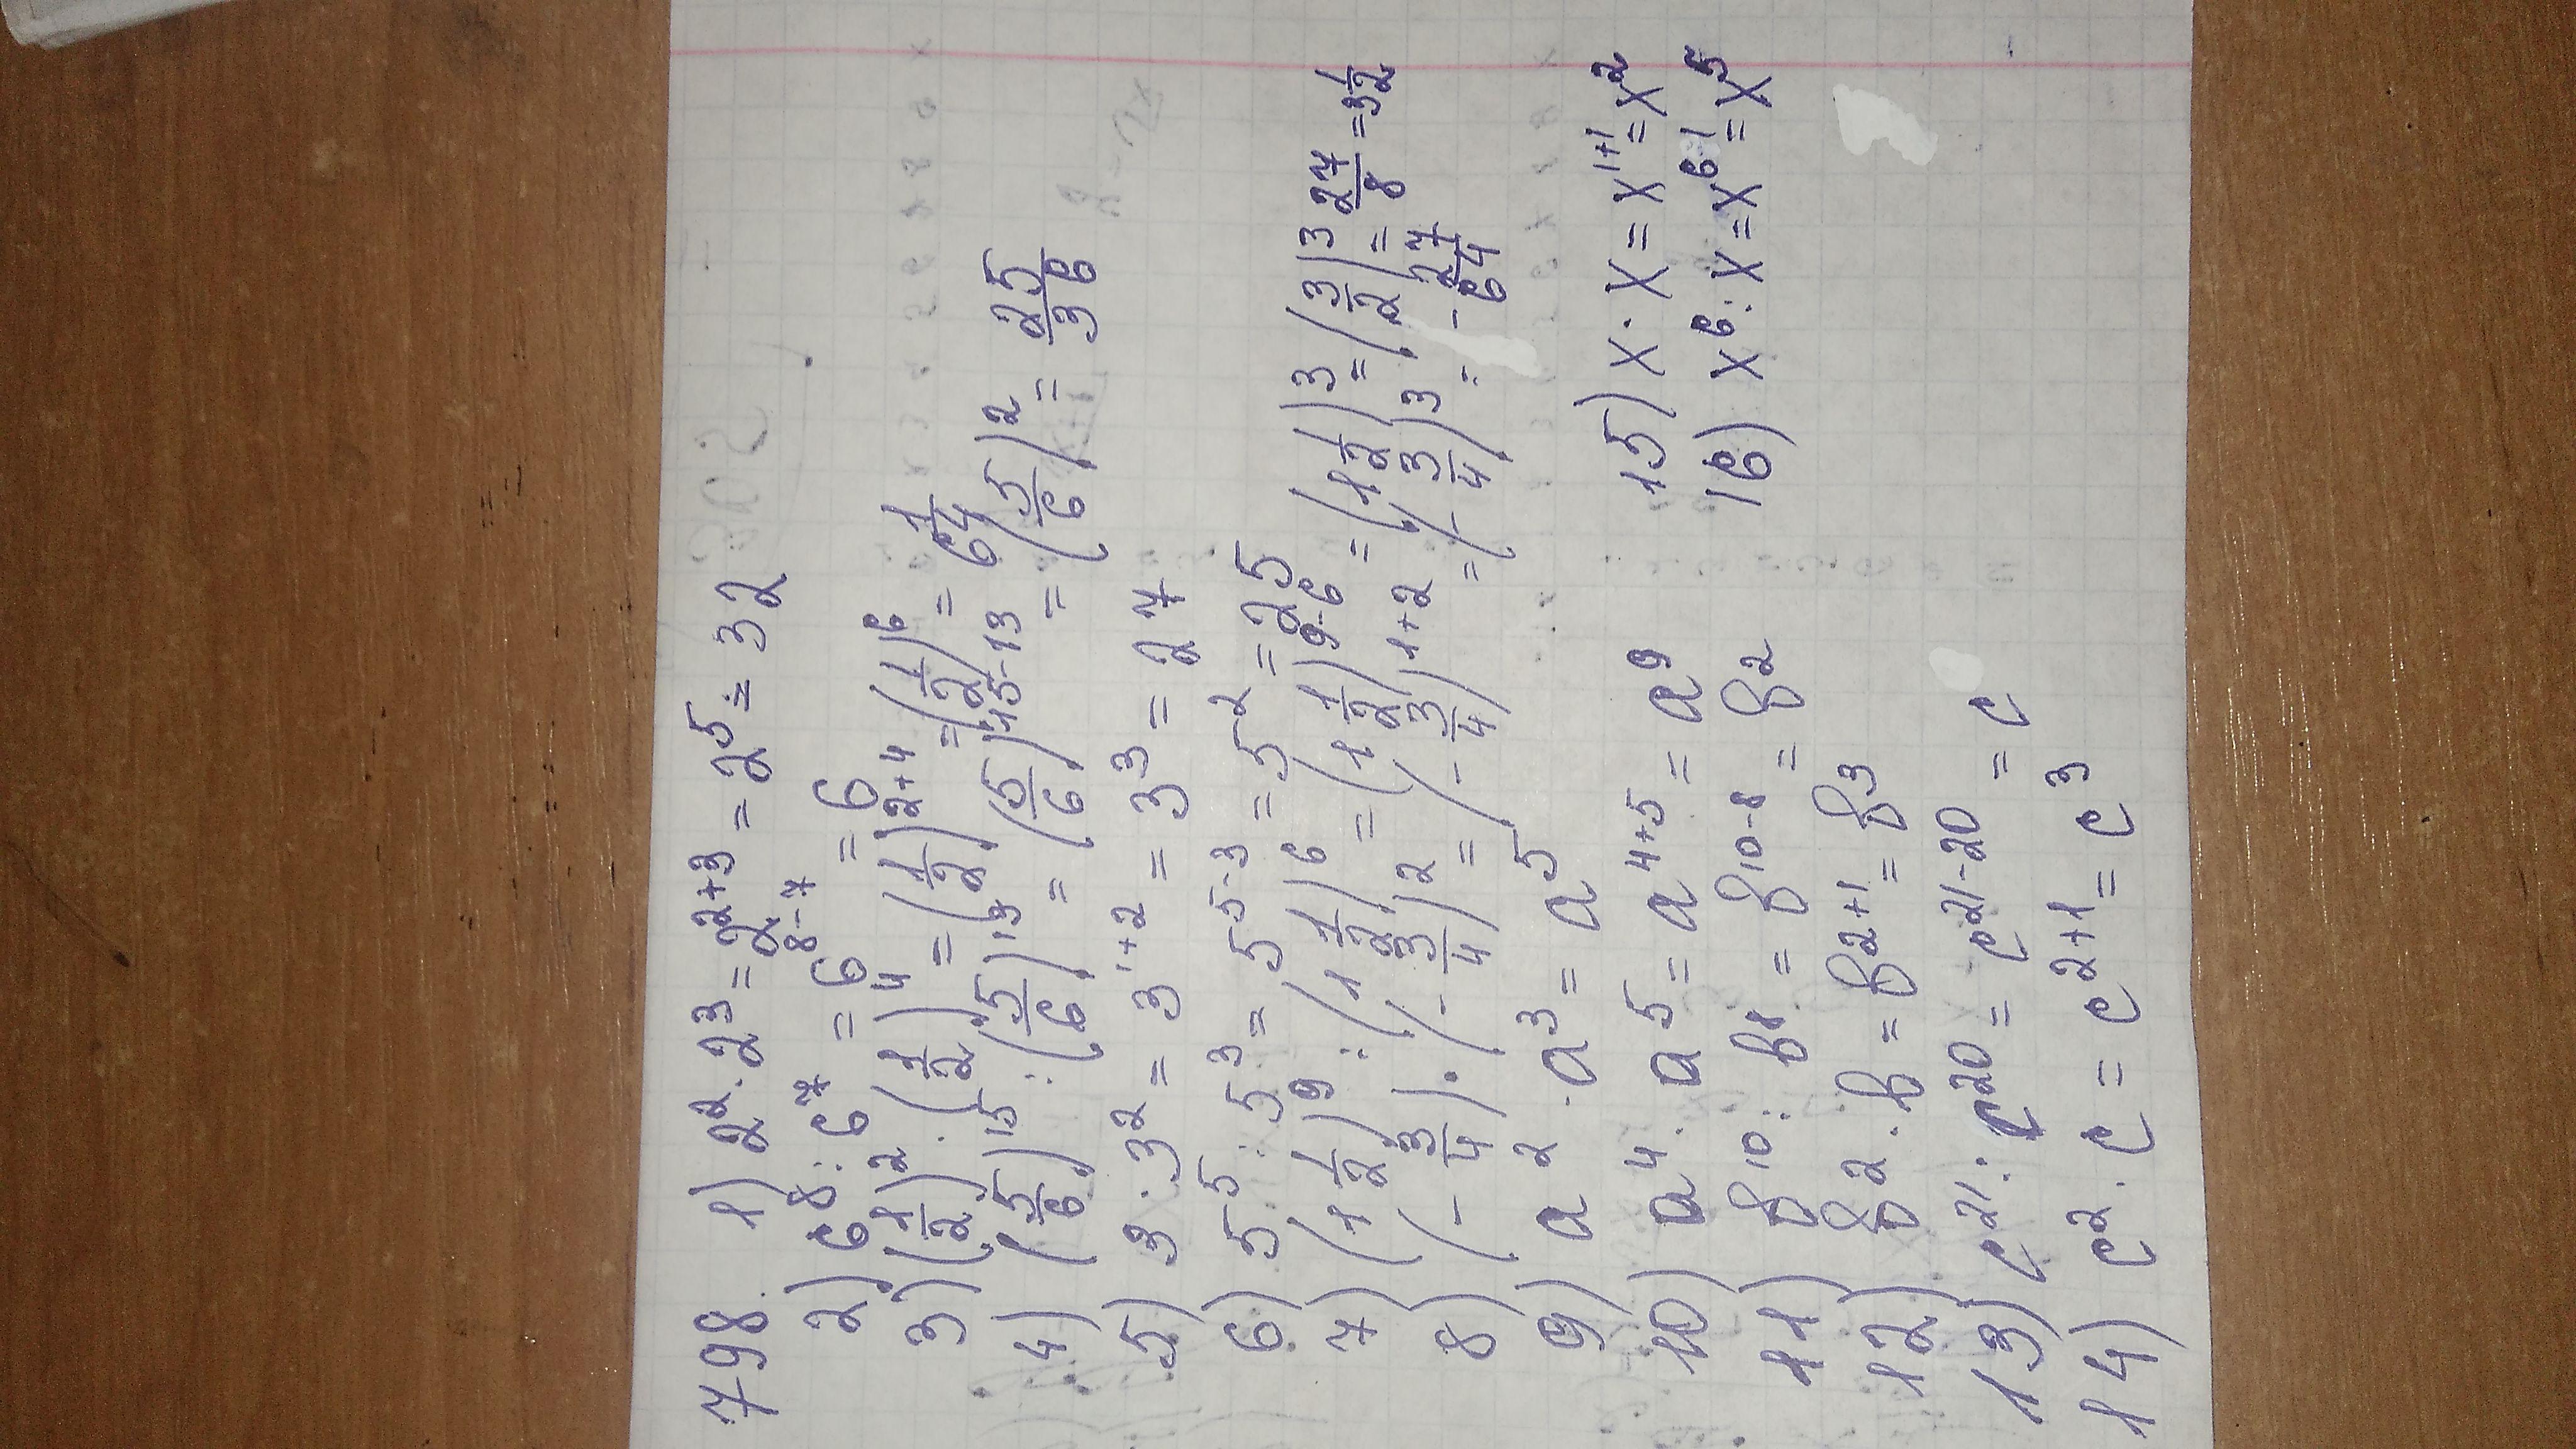 798. 1) 2² · 2³ = 2²⁺³ = 2⁵ = 32
2) 6⁸ : 6⁷ = 6⁸⁻⁷ = 6
3) (1/2)² · (1/2)⁴ = (1/2)²⁺⁴ = (1/2)⁶ = 1/64
4) (5/6)¹⁵ : (5/6)¹³ = (5/6)¹⁵⁻¹³ = (5/6)² = 25/36
5) 3 · 3² = 3¹⁺² = 3³ = 27
6) 5⁵ : 5³ = 5⁵⁻³ = 5² = 25
7) (1 1/2)⁹ : (1 1/2)⁶ = (1 1/2)⁹⁻⁶ = (1 1/2)³ = (3/2)³ = 27/8 = 3 1/2
8) (-3/4) · (-3/4)² = (-3/4)¹⁺² = (-3/4)³ = -27/64
9) a² · a³ = a⁵
10) a⁴ · a⁵ = a⁴⁺⁵ = a⁹
11) b¹⁰ : b⁸ = b¹⁰⁻⁸ = b²
12) b² · b = b²⁺¹ = b³
13) c²¹ : c²⁰ = c²¹⁻²⁰ = c
14) c² · c = c²⁺¹ = c³
15) x · x = x¹⁺¹ = x²
16) x⁶ : x = x⁶⁻¹ = x⁵